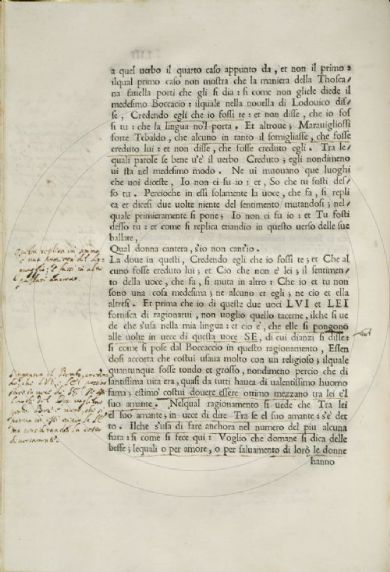 a quel uerbo il quarto caso appunto da, et non il primo:
ilqual primo caso non mostra che la maniera della Thosca/
na fauella porti che gli si dia: si come non gliele diede il
medesimo Boccacio: ilquale nella nouella di Lodouico dis/
se, Credendo egli che io fossi te: et non disse, che io fos
si tu: che la lingua nol porta. Et altroue; Marauigliossi
forte Tebaldo, che alcuno in tanto il somigliasse, che fosse
creduto lui: et non disse, che fosse creduto egli. Tra le/
quali parole se bene u'è il uerbo Creduto; egli nondimeno
ui sta nel medesimo modo. Ne ui muouano que luoghi
che uoi diceste, Io non ci fu io: et, So che tu fosti des/
so tu. Percioche in essi solamente la uoce, che fa, si repli
ca et dicesi due uolte niente del sentimento mutandosi; nel/
quale primieramente si pone; Io non ci fu io: et Tu fosti
desso tu: et come si replica etiandio in questo uerso delle sue
ballate,
Qual donna cantera, s'io non cant'io.
La doue in questi, Credendo egli che io fossi te; et Che al
cuno fosse creduto lui; et Cio che non è lei; il sentimen/
to della uoce, che fa, si muta in altro: Che io et tu non
sono una cosa medesima; ne alcuno et egli; ne cio et ella
altresi. Et prima che io di queste due uoci LVI et LEI
fornisca di ragionarui, non uoglio quello tacerne, ilche si ue
de che s'usa nella mia lingua: et cio è, che elle si pongono
alle uolte in uece di questa uoce SE, di cui dianzi si disse:
si come si pose dal Boccaccio in questo ragionamento, Essen
dosi accorta che costui usaua molto con un religioso; ilquale
quantunque fosse tondo et grosso, nondimeno percio che di
santissima uita era, quasi da tutti hauea di ualentissimo huomo
fama; estimò costui douere essere ottimo mezzano tra lei e'l
suo amante. Nelqual ragionamento si uede che Tra lei
e'l suo amante; in uece di dire Tra se e'l suo amante: s'è det
to. Ilche s'usa di fare anchora nel numero del piu alcuna
fiata: si come si fece qui: Voglio che domane si dica delle
beffe; lequali o per amore, o per saluamento di loro le donne
hanno